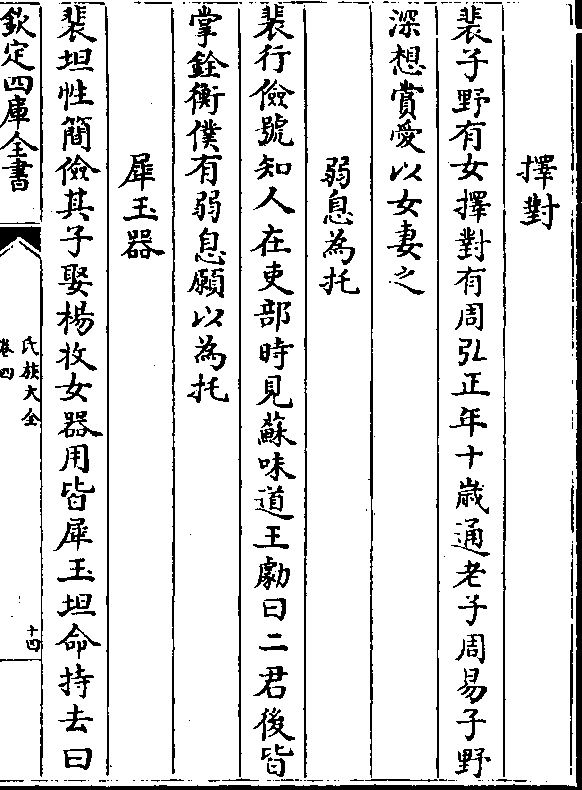 擇對
裴子野有女擇對有周弘正年十歳通老子周易子野
深想賞愛以女妻之
弱息為托
裴行儉號知人在吏部時見蘇味道王勮曰二君後皆
掌銓衡僕有弱息願以為托
犀玉器
裴坦性簡儉其子娶楊收女器用皆犀玉坦命持去曰
欽定四庫全書
氏族大全
卷四
十四